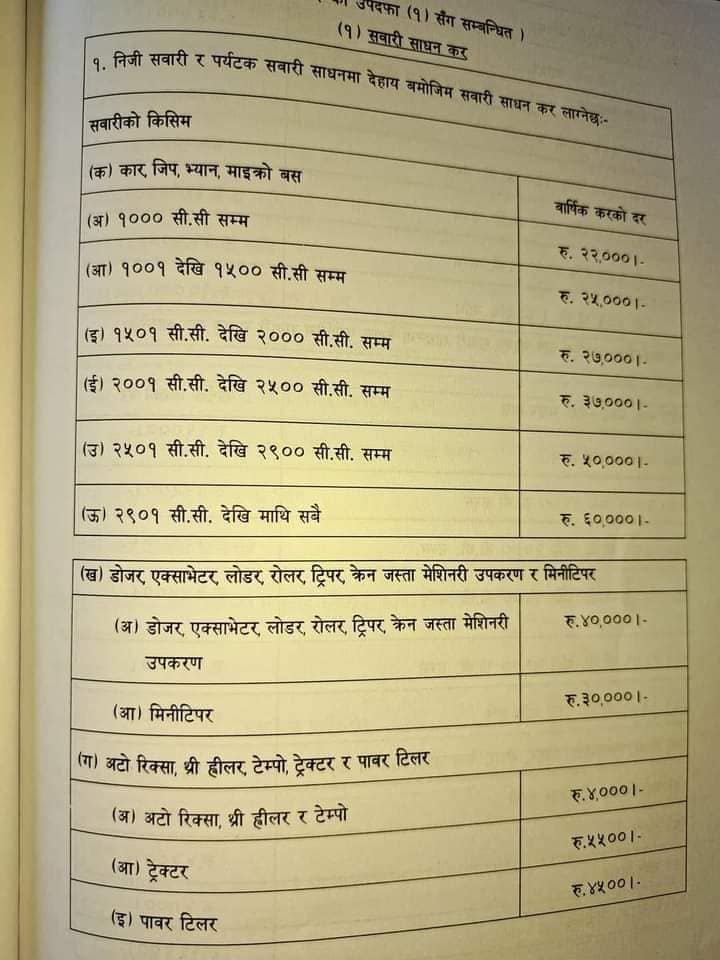 उपदफा (१) सँग सम्बन्धित )
(१) सवारी साधन कर
१. निजी सवारी र पर्यटक सवारी साधनमा देहाय बमोजिम सवारी साधन कर लाग्नेछः-
सवारीको किसिम
(क) कार, जिप, भ्यान, माइक्रो बस
वार्षिक करको दर
(अ) १००० सी.सी सम्म
रु. २२,०००।-
(आ) १००१ देखि १५०० सी.सी सम्म
रु. २५,०००।-
(इ) १५०१ सी.सी. देखि २००० सी.सी. सम्म
रु. २७,०००।-
(ई) २००१ सी.सी. देखि २५०० सी.सी. सम्म
रु. ३७,०००।-
(उ) २५०१ सी.सी. देखि २९०० सी.सी. सम्म
रु. ५०,०००।-
(ऊ) २९०१ सी.सी. देखि माथि सबै
रु. ६०,०००।-
(ख) डोजर, एक्साभेटर, लोडर, रोलर, ट्रिपर, क्रेन जस्ता मेशिनरी उपकरण र मिनीटिपर
(अ) डोजर, एक्साभेटर, लोडर, रोलर, ट्रिपर, क्रेन जस्ता मेशिनरी
उपकरण
रु.४०,०००।-
(आ) मिनीटिपर
रु.३०,०००।-
(ग) अटो रिक्सा, थ्री ह्वीलर, टेम्पो, ट्रेक्टर र पावर टिलर
(अ) अटो रिक्सा, थ्री ह्वीलर र टेम्पो
रु.४,०००।-
(आ) ट्रेक्टर
रु.५५००।-
(इ) पावर टिलर
रु.४५००।-